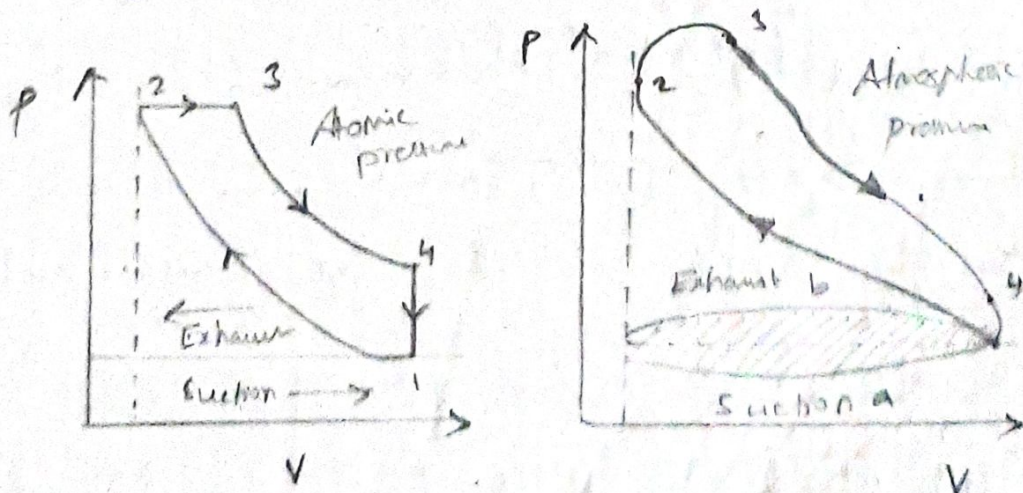 P
2
3
Atomic
pressure
4
Exhaust
Suction
1
V
P
3
2
Atmospheric
pressure
Exhaust b
4
Suction a
V